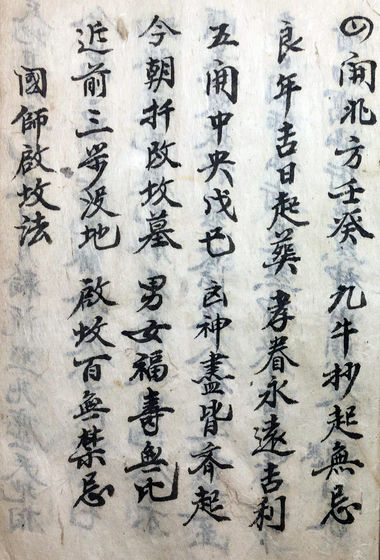 四開北方壬癸　九牛抄起無忌
良年吉日起葬　孝眷永遠吉利
五開中央戊己　凶神盡皆齐起
今朝扦改坟墓　男女福壽無比
近前三步没地　啟坟百無禁忌
國師啟坟法